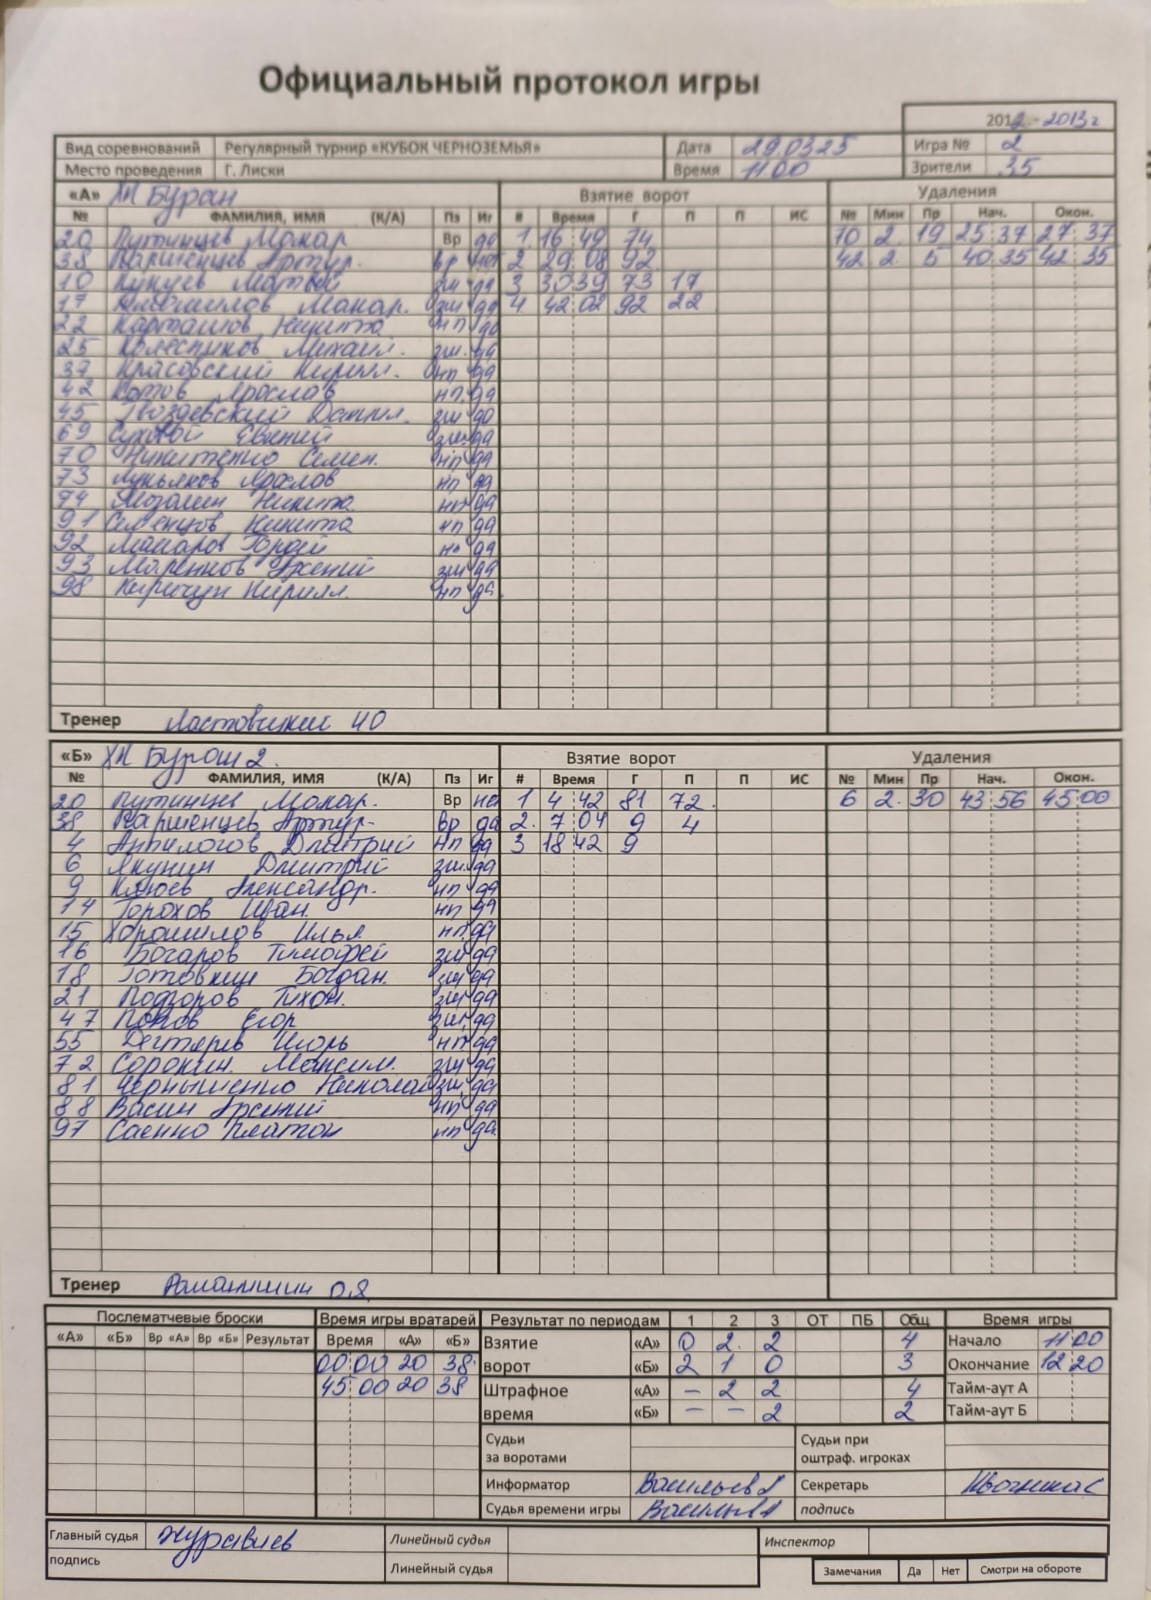 Официальный протокол игры
2012 - 2013 г
Вид соревнований Регулярный турнир «КУБОК ЧЕРНОЗЕМЬЯ» Дата 29 03 25 Игра № 2
Место проведения Г. Лиски Время 11 00 Зрители 35
«А» ХК Буран Взятие ворот Удаления
№ ФАМИЛИЯ, ИМЯ (К/А) Пз Иг # Время Г П П ИС № Мин Пр Нач. Окон.
20 Путинцев Макар Вр да 1 16 49 74 70 2 19 25 37 27 37
38 Паршенцев Артур. Вр нет 2 29 08 92 42 2 5 40 35 42 35
10 Матвей зщ да 3 30 39 73 17
17 Макар. зщ да 4 42 02 92 22
22 Карташов Никита нп да
25 Колесников Михаил. зщ. да
37 Красовский Кирилл. нп да
42 Котов Ярослав нп. да
45 Гвоздевский Данил. зщ да
69 Сухвой Евгений зщ. да
70 Никитенко Семен. нп да
73 Лукьянов Ярослав нп да
74 Мозалин Никита нп да
91 Семенцов Никита нп да
92 Макаров Гордей нп да
93 Маренков Арсений зщ да
98 Киричун Кирилл. нп да
Тренер Ю
«Б» ХК Буран 2. Взятие ворот Удаления
№ ФАМИЛИЯ, ИМЯ (К/А) Пз Иг # Время Г П П ИС № Мин Пр Нач. Окон.
20 Путинцев Макар. Вр нет 1 4 42 81 72. 6 2. 30 43 56 45 00
38 Паршенцев Артур- Вр да 2. 7 04 9 4
4 Анпилогов Дмитрий нп да 3 18 42 9
6 Якунин Дмитрий зщ. да
9 Клюев Александр. нп да
14 Горохов Иван. нп да
15 Хорошилов Илья нп да
16 Богаров Тимофей зщ да
18 Готовкин Богдан. зщ да
21 Подгоров Тихон. зщ да
47 Попов Егор зщ. да
55 Дегтярев Игорь нп да
72 Сорокин. Максим. зщ да
81 Чернышенко Николай зщ да
88 Васин Арсений нп да
97 Саенко Платон нп да
Тренер
Послематчевые броски Время игры вратарей Результат по периодам 1 2 3 ОТ ПБ Общ Время игры
«А» «Б» Вр «А» Вр «Б» Результат Время «А» «Б» Взятие «А» 0 2. 2 4 Начало 11 00
00 00 20 38 ворот «Б» 2 1 0 3 Окончание 12 20
45 00 20 38 Штрафное «А» – 2 2 4 Тайм-аут А
время «Б» – – 2 2 Тайм-аут Б
Судьи за воротами Судьи при оштраф. игроках
Информатор Васильев А Секретарь
Судья времени игры Васильев А подпись
Главный судья Журавлев Линейный судья Инспектор
подпись Линейный судья Замечания Да Нет Смотри на обороте